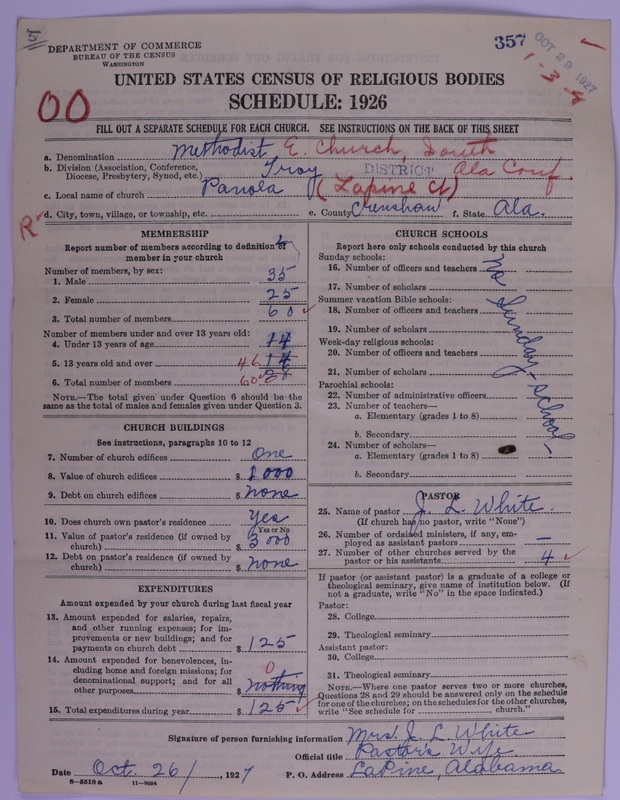 5
DEPARTMENT OF COMMERCE
BUREAU OF THE CENSUS
WASHINGTON
357
OCT 29 1927
1-3-4
UNITED STATES CENSUS OF RELIGIOUS BODIES
SCHEDULE: 1926
00
FILL OUT A SEPARATE SCHEDULE FOR EACH CHURCH. SEE INSTRUCTIONS ON THE BACK OF THIS SHEET
a. Denomination Methodist E. Church, South
b. Division (Association, Conference, Diocese, Presbytery, Synod, etc.) Troy DISTRICT Ala Conf.
c. Local name of church Panola (Lapine Ct)
d. City, town, village, or township, etc. e. County Crenshaw f. State Ala.
R
MEMBERSHIP
Report number of members according to definition of
member in your church
Number of members, by sex:
1. Male 35
2. Female 25
3. Total number of members 60
Number of members under and over 13 years old:
4. Under 13 years of age 14
5. 13 years old and over 46 14
6. Total number of members 60 28
NOTE.—The total given under Question 6 should be
the same as the total of males and females given under Question 3.
CHURCH BUILDINGS
See instructions, paragraphs 10 to 12
7. Number of church edifices One
8. Value of church edifices $ 1000
9. Debt on church edifices $ none
10. Does church own pastor's residence Yes
Yes or No
11. Value of pastor's residence (if owned by
church) $ 3000
12. Debt on pastor's residence (if owned by
church) $ none
EXPENDITURES
Amount expended by your church during last fiscal year
13. Amount expended for salaries, repairs,
and other running expenses; for im-
provements or new buildings; and for
payments on church debt $ 125
14. Amount expended for benevolences, in-
cluding home and foreign missions; for
denominational support; and for all
other purposes $ nothing 0
15. Total expenditures during year $ 125
CHURCH SCHOOLS
Report here only schools conducted by this church
Sunday schools:
16. Number of officers and teachers
17. Number of scholars
Summer vacation Bible schools:
18. Number of officers and teachers
19. Number of scholars
Week-day religious schools:
20. Number of officers and teachers
21. Number of scholars
Parochial schools:
22. Number of administrative officers
23. Number of teachers—
a. Elementary (grades 1 to 8)
b. Secondary
24. Number of scholars—
a. Elementary (grades 1 to 8)
b. Secondary
No Sunday-school—
PASTOR
25. Name of pastor J. L. White.
(If church has no pastor, write "None")
26. Number of ordained ministers, if any, em-
ployed as assistant pastors —
27. Number of other churches served by the
pastor or his assistants 4
If pastor (or assistant pastor) is a graduate of a college or
theological seminary, give name of institution below. (If
not a graduate, write "No" in the space indicated.)
Pastor:
28. College
29. Theological seminary
Assistant pastor:
30. College
31. Theological seminary
NOTE.—Where one pastor serves two or more churches,
Questions 28 and 29 should be answered only on the schedule
for one of the churches; on the schedules for the other churches,
write "See schedule for church."
Signature of person furnishing information Mrs. J. L. White
Official title Pastors Wife
Date Oct. 26/, 1927 P. O. Address LaPine, Alabama
8-5518a 11-9054